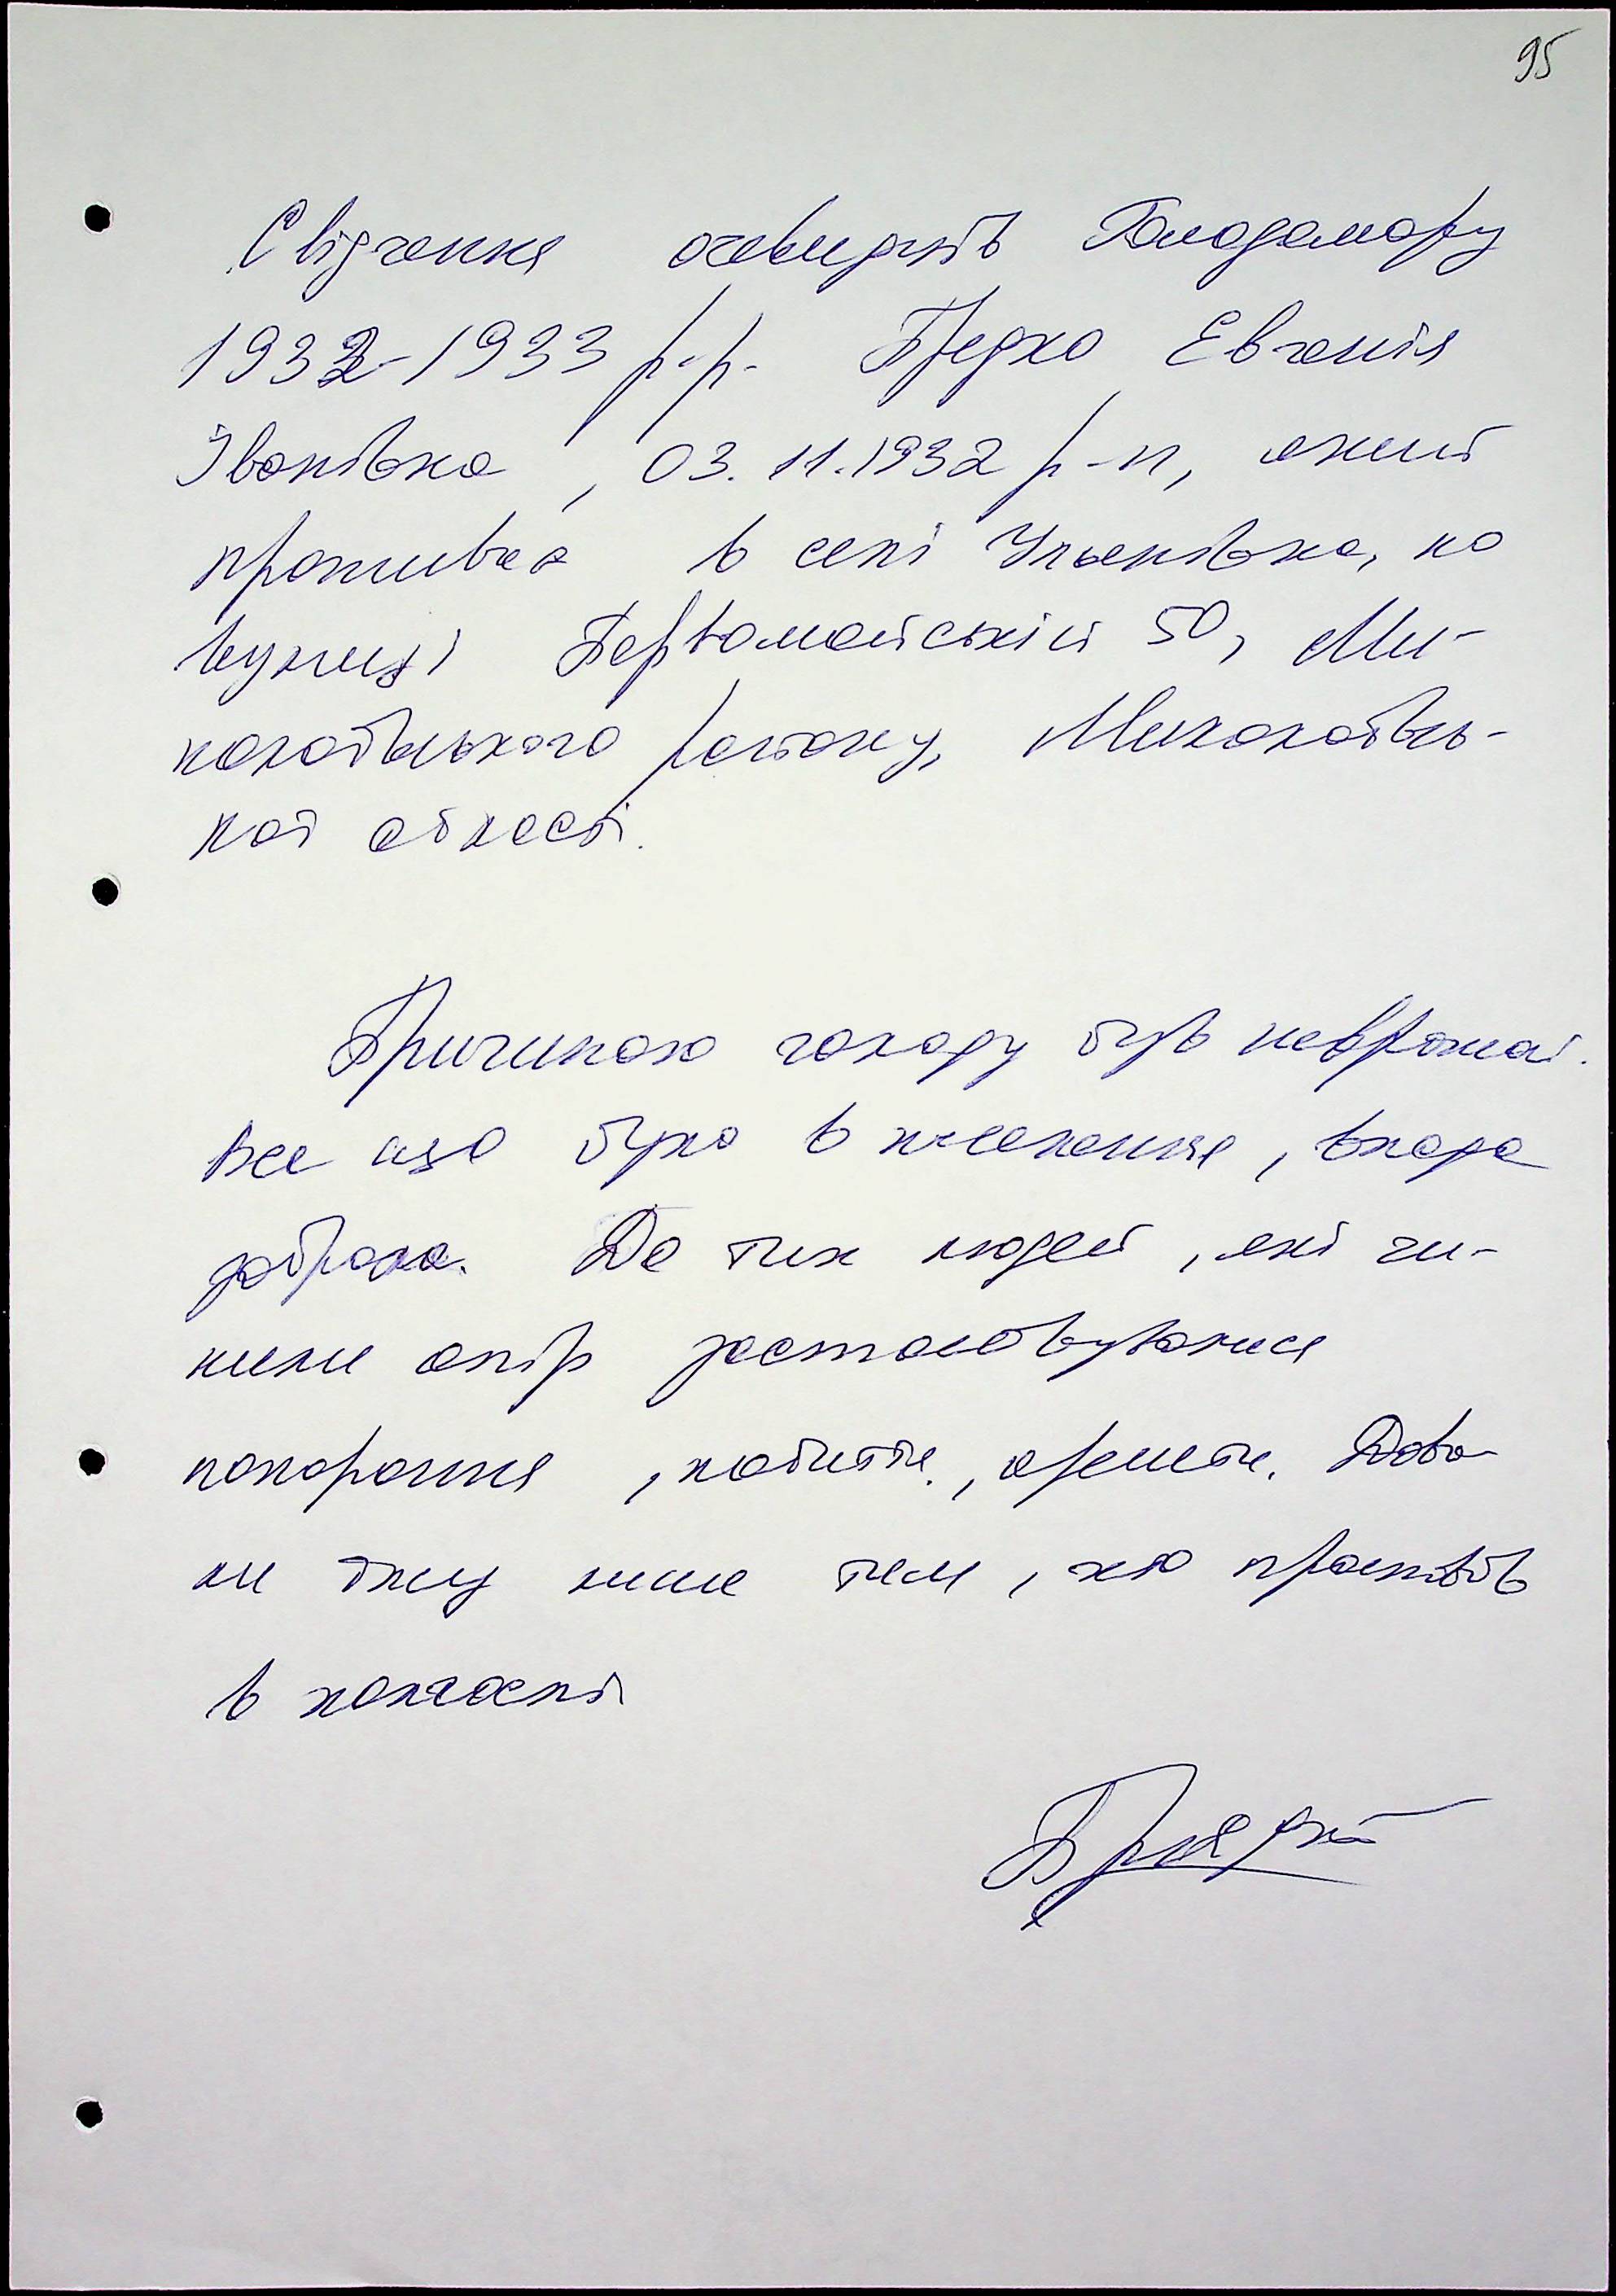 95
Свідчення очевидців Голодомору
1932-1933 р.р. Євгенія
Іванівна, 03.11.1932 р-н, який
проживає в селі Ульянівка, по
вулиці Первомайській 50, Ми-
колаївського району, Миколаївсь-
кої області.
Причиною голоду був неврожай.
Все що було в населення, влада
забрала. До тих людей, які чи-
нили опір застосовувалися
покарання, побиття, арешти. Дава-
ли їжу лише тим, хто працював
в колгоспі